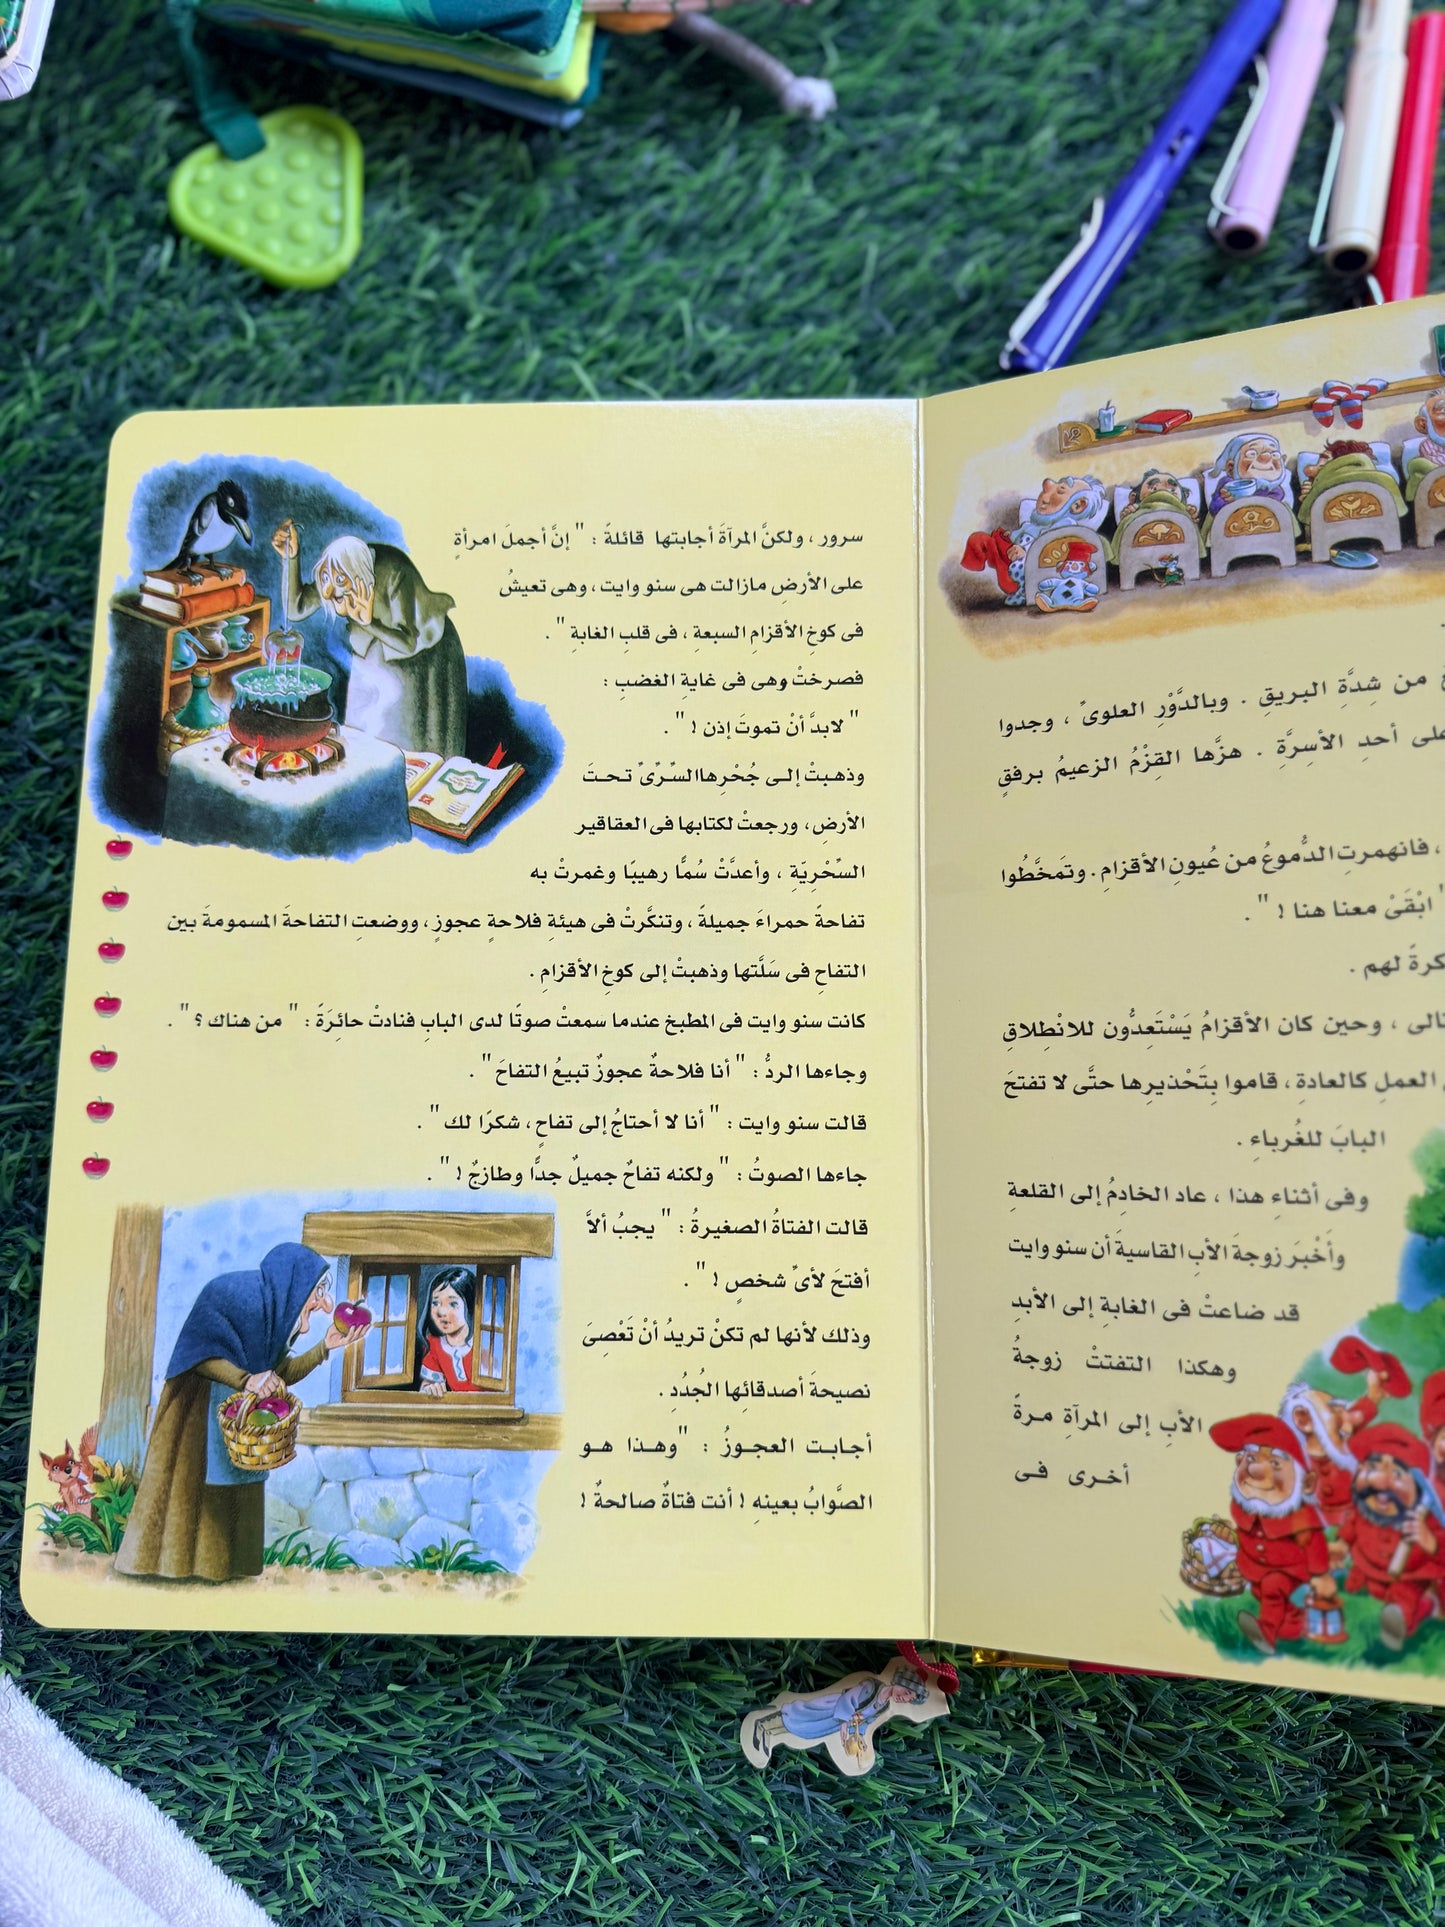 من شِدَّةِ البريقِ . وبالدَّوْرِ العلوىِّ ، وجدوا
على أحدِ الأسِرَّةِ . هزَّها القِزْمُ الزعيمُ برفقٍ
، فانهمرتِ الدُّموعُ من عُيونِ الأقزامِ . وتَمخَّطُوا
" ابْقَىْ معنا هنا ! " .
لهم .
، وحين كان الأقزامُ يَسْتَعِدُّون للانْطِلاقِ
العملِ كالعادةِ ، قاموا بِتَحْذيرِها حتَّى لا تفتحَ
البابَ للغُرباءِ .
وفى أثناءِ هذا ، عاد الخادِمُ إلى القلعةِ
وأَخْبَرَ زوجةَ الأبِ القاسيةَ أن سنو وايت
قد ضاعتْ فى الغابةِ إلى الأبدِ
وهكذا التفتتْ زوجةُ
الأبِ إلى المرآةِ مرةً
أخرى فى
سرور ، ولكنَّ المرآةَ أجابتها قائلةً : " إنَّ أجملَ امرأةٍ
على الأرضِ مازالت هى سنو وايت ، وهى تعيشُ
فى كوخِ الأقزامِ السبعةِ ، فى قلبِ الغابةِ " .
فصرختْ وهى فى غايةِ الغضبِ :
" لابدَّ أنْ تموتَ إذن ! " .
وذهبتْ إلى جُحْرِها السِّرِّىِّ تحتَ
الأرضِ ، ورجعتْ لكتابها فى العقاقير
السِّحْرِيّةِ ، وأعدَّتْ سُمًّا رهيبًا وغمرتْ به
تفاحةً حمراءَ جميلةً ، وتنكَّرتْ فى هيئةِ فلاحةٍ عجوزٍ ، ووضعتِ التفاحةَ المسمومةَ بين
التفاحِ فى سَلَّتها وذهبتْ إلى كوخِ الأقزامِ .
كانت سنو وايت فى المطبخ عندما سمعتْ صوتًا لدى البابِ فنادتْ حائِرَةً : " من هناك ؟ " .
وجاءها الردُّ : " أنا فلاحةٌ عجوزٌ تبيعُ التفاحَ " .
قالت سنو وايت : " أنا لا أحتاجُ إلى تفاحٍ ، شكرًا لك " .
جاءها الصوتُ : " ولكنه تفاحٌ جميلٌ جدًّا وطازجٌ ! " .
قالت الفتاةُ الصغيرةُ : " يجبُ ألاَّ
أفتحَ لأىِّ شخصٍ ! " .
وذلك لأنها لم تكنْ تريدُ أنْ تَعْصِىَ
نصيحةَ أصدقائِها الجُدُدِ .
أجابت العجوزُ : "وهذا هو
الصَّوابُ بعينهِ ! أنت فتاةٌ صالحةٌ !